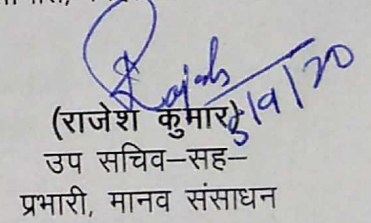 Rajesh
/9/20
(राजेश कुमार)
उप सचिव–सह–
प्रभारी, मानव संसाधन